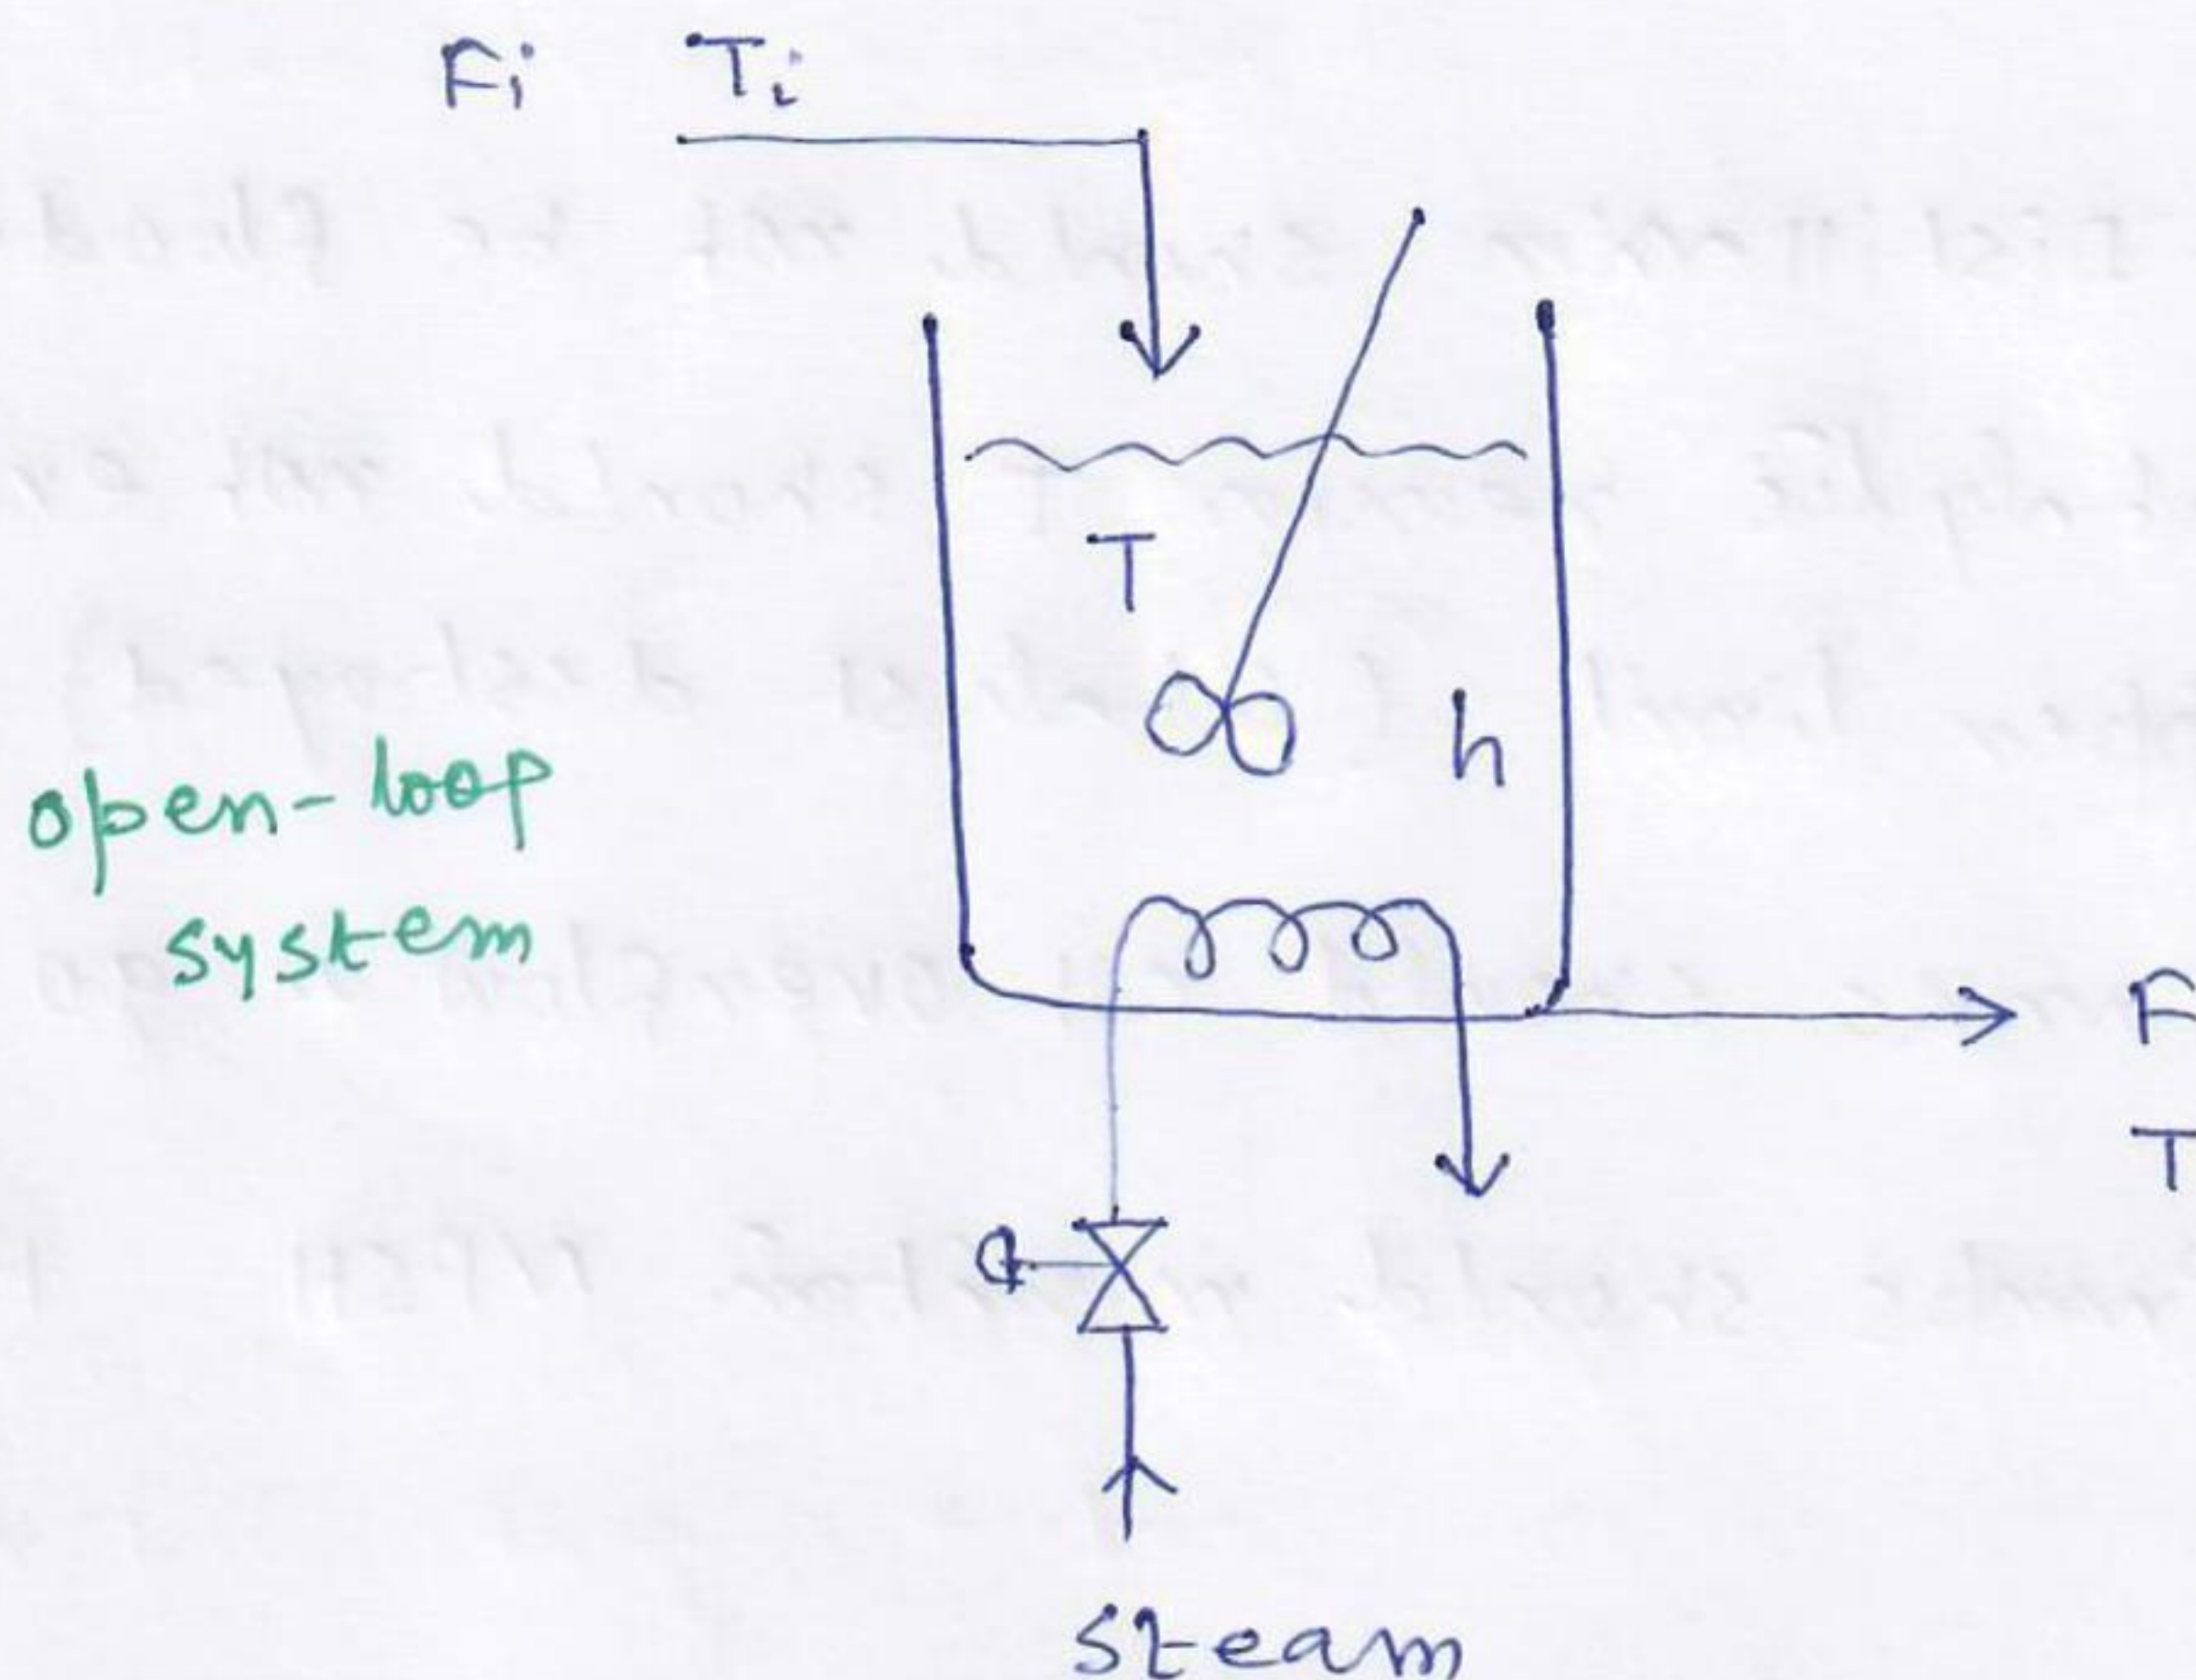 Fi Ti
T
h
open-loop
system
F
T
steam